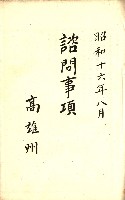 昭和十六年八月
諮問事項
高雄州